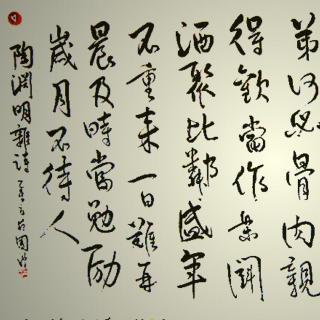 弟何必骨肉親
得歡當作樂鬥
酒聚比鄰盛年
不重來一日難再
晨及時當勉励
歲月不待人
陶淵明雜詩